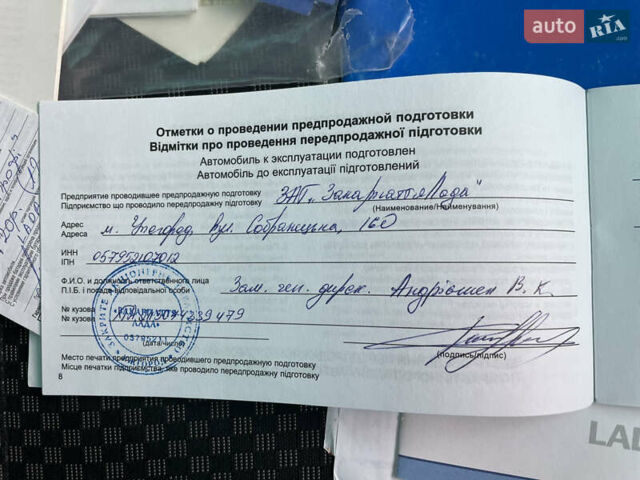 auto RIA .com
Отметки о проведении предпродажной подготовки
Відмітки про проведення передпродажної підготовки
Автомобиль к эксплуатации подготовлен
Автомобіль до експлуатації підготовлений
Предприятие проводившее предпродажную подготовку
Підприємство що проводило передпродажну підготовку ЗАТ „Закарпаття Лада"
(Наименование/Найменування)
Адрес
Адреса м. Ужгород, вул. Собранецька, 160
ИНН
ІПН 057952107012
Ф.И.О. и должность ответственного лица
П.І.Б. і посада відповідальної особи Зам. ген. дирек. В. К.
№ кузова
№ кузова
(дата/число)
(подпись/підпис)
Место печати предприятия проводившего предпродажную подготовку
Місце печатки підприємства, яке проводило передпродажну підготовку
8
LAD